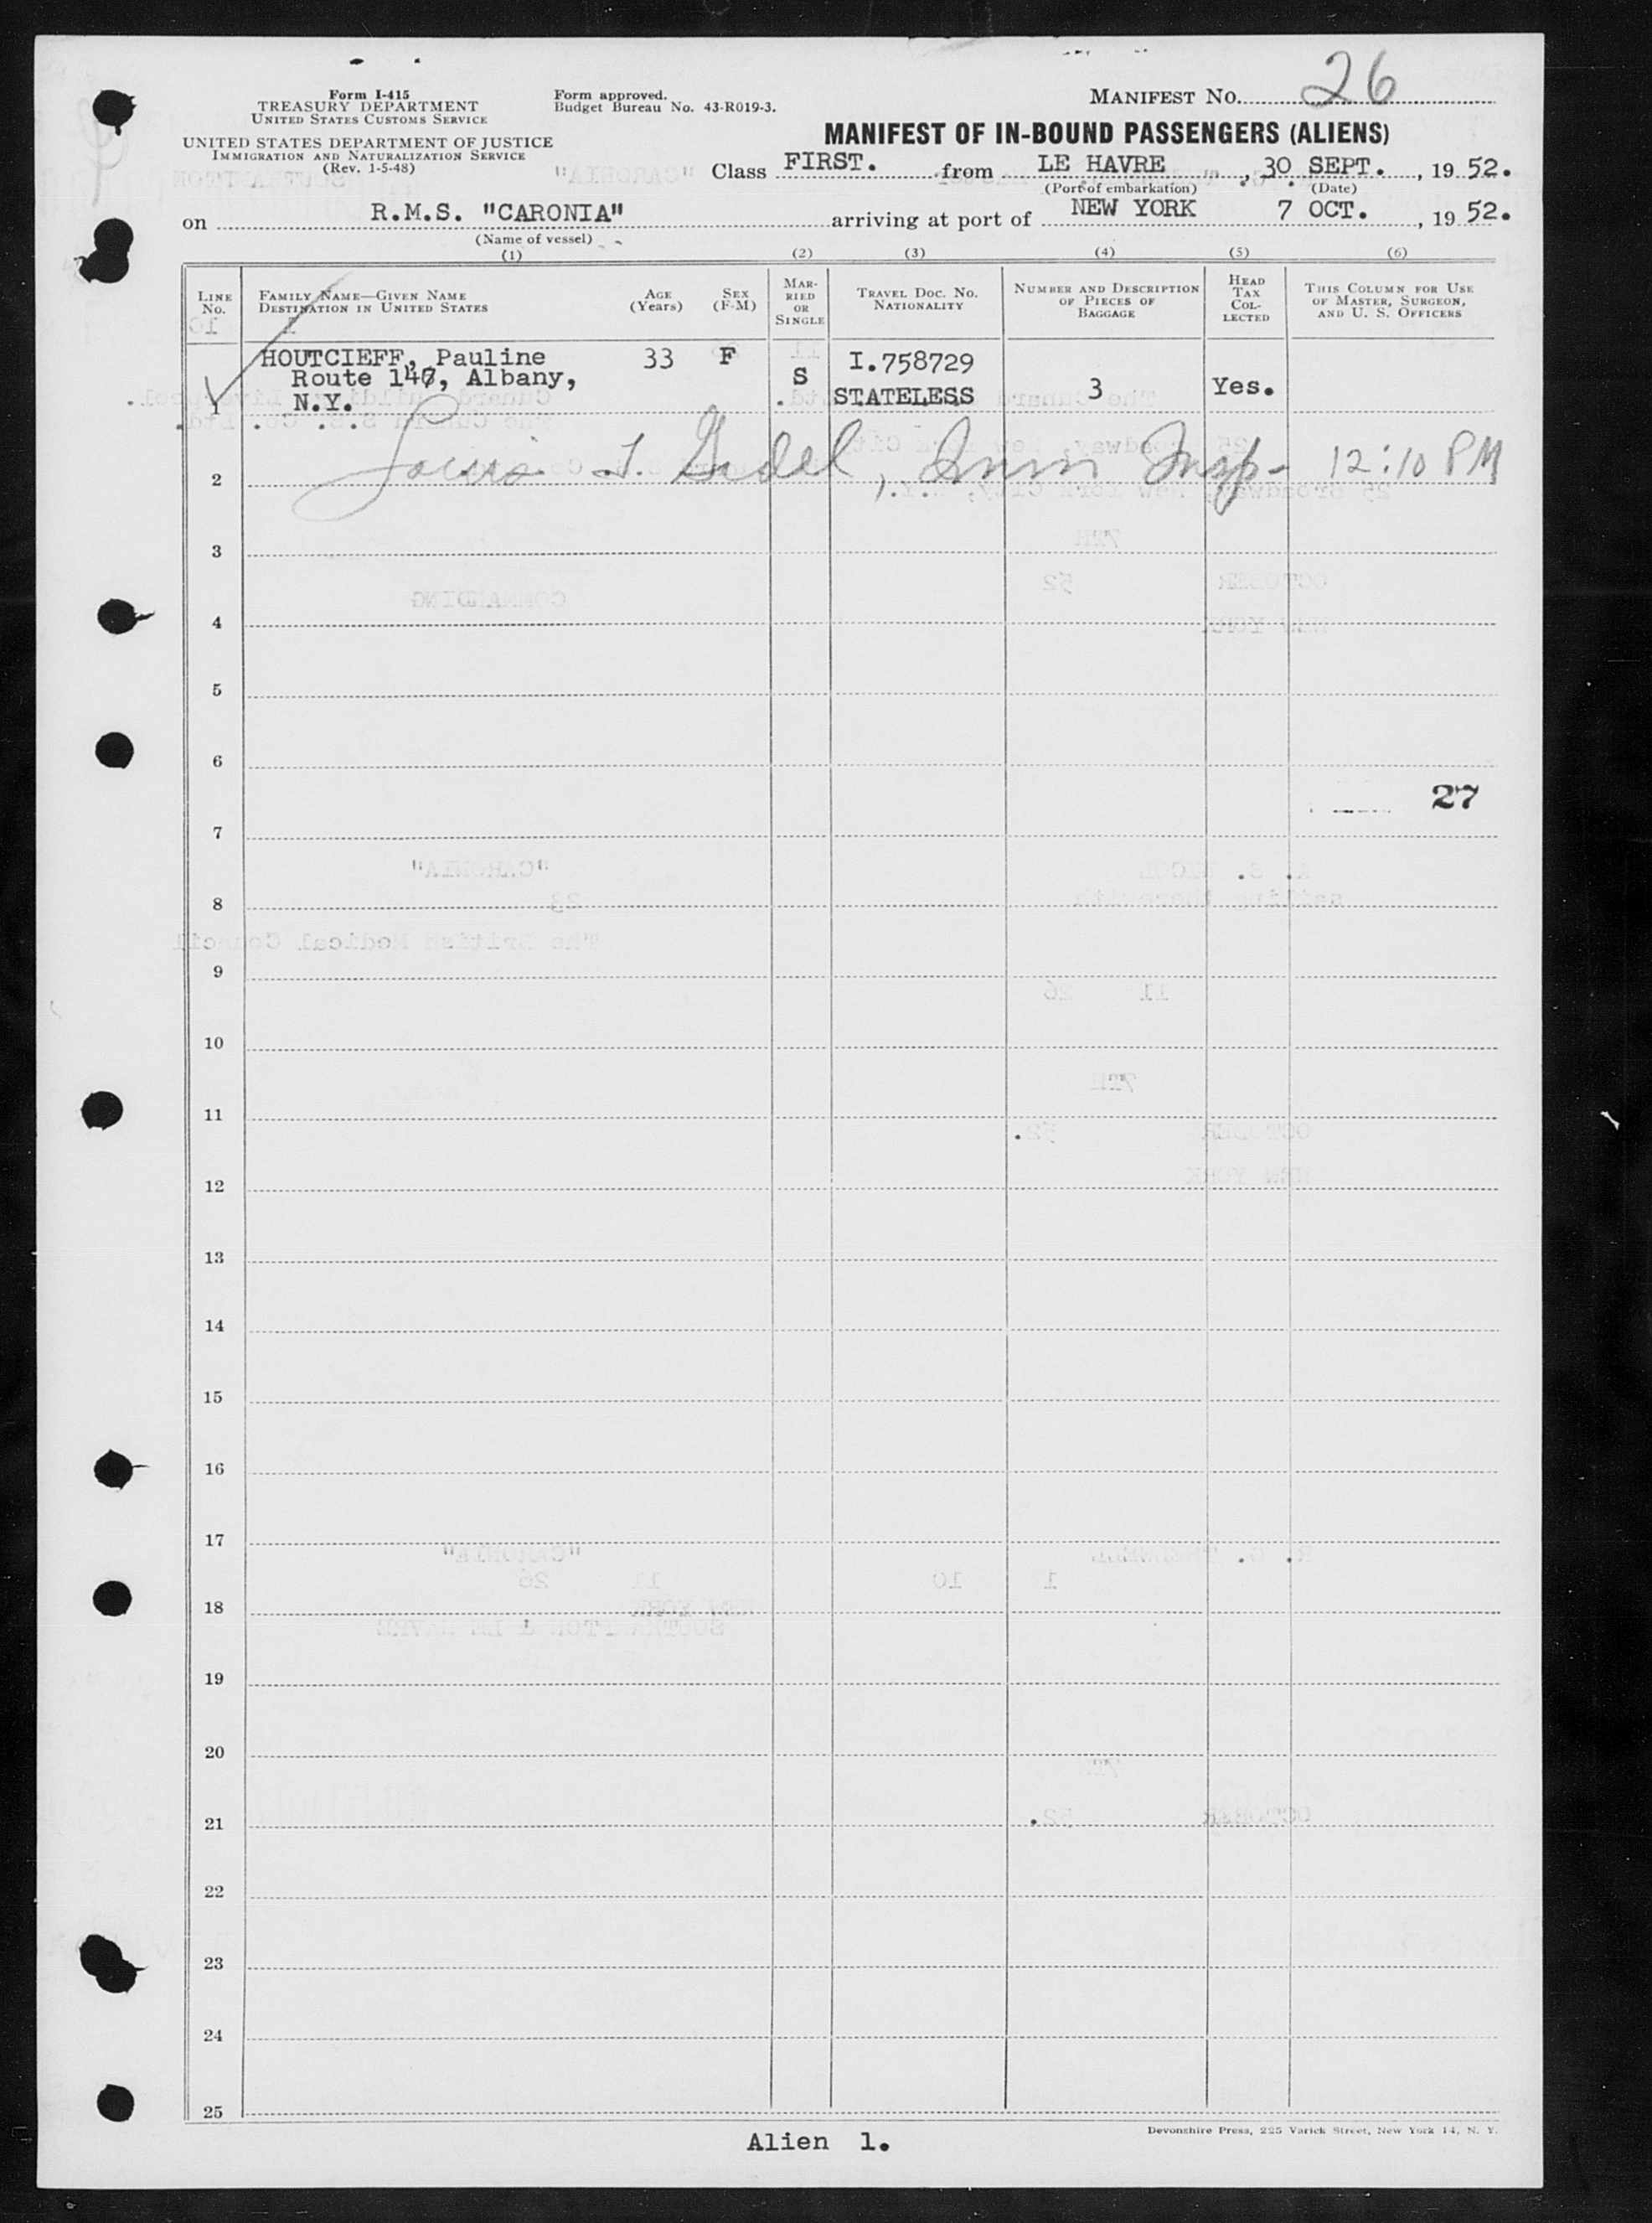 Form I-415
TREASURY DEPARTMENT
UNITED STATES CUSTOMS SERVICE
UNITED STATES DEPARTMENT OF JUSTICE
IMMIGRATION AND NATURALIZATION SERVICE
(Rev. 1-5-48)
Form approved.
Budget Bureau No. 43-R019-3.
MANIFEST NO. 26
MANIFEST OF IN-BOUND PASSENGERS (ALIENS)
Class FIRST. from LE HAVRE, 30 SEPT., 19 52.
(Port of embarkation) (Date)
on R.M.S. "CARONIA" arriving at port of NEW YORK 7 OCT., 19 52.
(Name of vessel)
(1) (2) (3) (4) (5) (6)
LINE NO. FAMILY NAME—GIVEN NAME DESTINATION IN UNITED STATES AGE (Years) SEX (F-M) MARRIED OR SINGLE TRAVEL DOC. NO. NATIONALITY NUMBER AND DESCRIPTION OF PIECES OF BAGGAGE HEAD TAX COLLECTED THIS COLUMN FOR USE OF MASTER, SURGEON, AND U. S. OFFICERS
HOUTCIEFF, Pauline 33 F I.758729
Route 147, Albany, S
1 N.Y. STATELESS 3 Yes.
2 Louis Imm Insp- 12:10 PM
3
4
5
6
27
7
8
9
10
11
12
13
14
15
16
17
18
19
20
21
22
23
24
25
Alien 1.
Devonshire Press, 225 Varick Street, New York 14, N. Y.